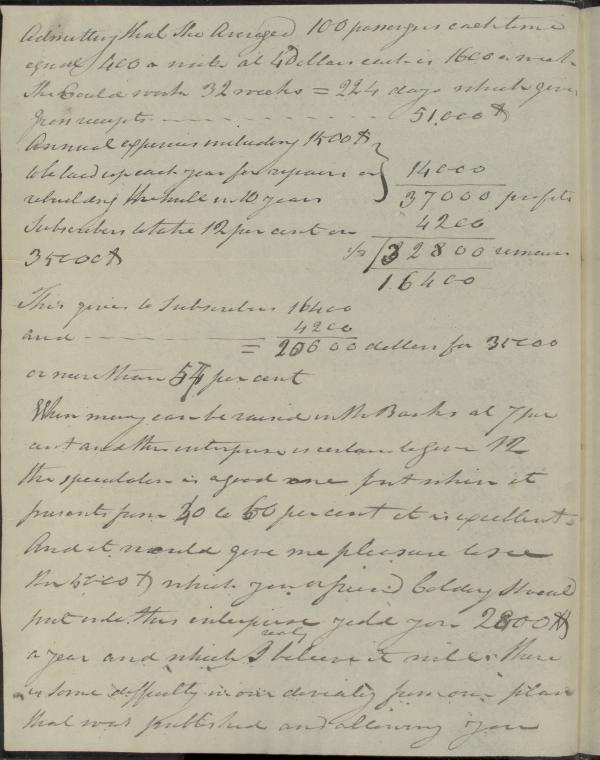 Admitting that She Averaged 100 passengers each time
equal 400 a week at 4 Dollars each is 1600 a week
She Could work 32 weeks = 224 days which gives
gross receipts - - - - - - - - 51,000 $
Annual expenses including 1500 $
to be laid up each year for repairs or } 14000
rebuilding the hull in 10 years 37000 profits
Subscribers to take 12 per cent on 4200
35000 $ 32800 remain
16400
This gives to Subscribers 16400
4200
and - - - = 20600 dollars for 35000
or more than 54 per cent
When money can be raised in the Banks at 7 per
cent and this enterprise is certain to give 12
the speculation is a good one but when it
presents from 40 to 60 per cent it is excellent
And it would give me pleasure to see
the 5000 $ which you or friend Colden should
put into this enterprise yield you 2800 $
a year and which I really believe it will. there
is some difficulty in our deviating from our plan
that was published and allowing you